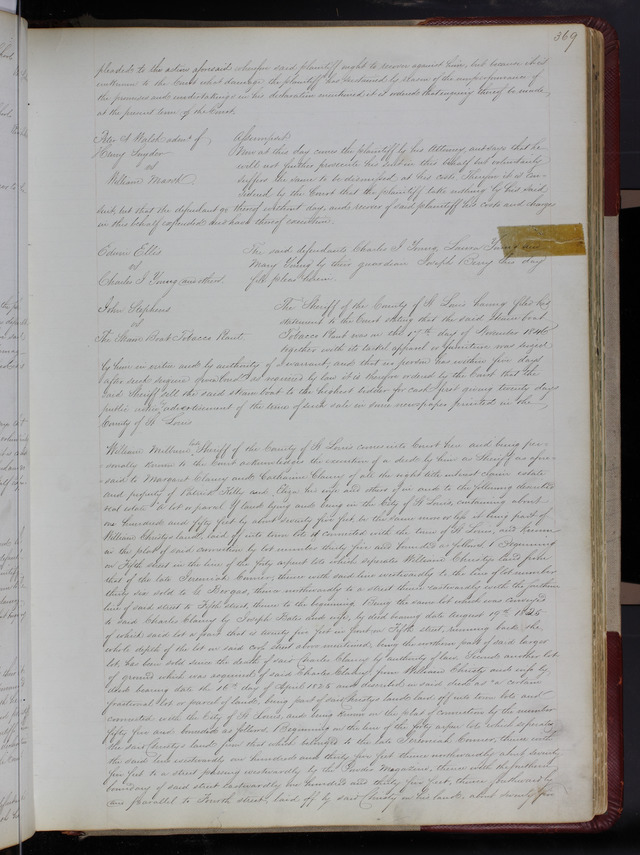 369
pleaded to the action aforesaid wherefore said plaintiff ought to recover against him, but because it is
unknown to the Court what damages the plaintiff has sustained by reason of the nonperformance of
the promises and undertakings in his declaration mentioned it is ordered that enquiry thereof be made
at the present term of the Court.
Peter A Walsh admr of
Henry Snyder
vs
William March
Assumpsit
Now at this day comes the plaintiff by his Attorney, and says that he
will not further prosecute his suit in this behalf but voluntarily
suffers the same to be dismissed at his costs Therefore it is Con-
sidered by the Court that the plaintiff take nothing by his said
suit, but that the defendant go thereof without day and recover of said plaintiff his costs and charges
in this behalf expended and have thereof execution.
Edwin Ellis
vs
Charles I Young and others
The said defendants Charles I Young, Laura Young and
Mary Young by their guardian Joseph Berry this day
file pleas herein.
John Stephens
vs
The Steam Boat Tobacco Plant
The Sheriff of the County of St Louis having filed his
statement to the Court stating that the said Steam boat
Tobacco Plant was on the day of November 1840
together with its tackle apparel & furniture was seized
by him in custom and by authority of warrant, and that no person has within five days
after such seizure given bond as required by law it is therefore ordered by the Court that the
said Sheriff sell the said steam boat to the highest bidder for cash first giving twenty days
public notice advertisement of the time of such sale in some newspaper printed in the
County of St Louis
William Milburn late Sheriff of the County of St Louis comes into Court here and being per-
sonally known to the Court acknowledges the execution of a deed by him as Sheriff as afore-
said to Margaret Clancy and Catharine Clancy of all the right title interest claim estate
and property of Patrick Kelly and Eliza his wife and others of in and to the following described
real estate "A lot or parcel of land lying and being in the City of St Louis, containing about
one hundred and fifty feet by about seventy five feet be the same more or less it being part of
William Christys land, laid off into town lots & connected with the town of St Louis and known
on the plat of said connection by lot number thirty five and bounded as follows, Beginning
on Fifth street in the line of the forty arpent lots which seperates William Christys land from
that of the late Jeremiah Connor; thence with said line westwardly to the line of lot number
thirty six sold to thence northwardly to a street thence eastwardly with the southern
line of said street to Fifth street, thence to the beginning. Being the same lot which was conveyed
to said Charles Clancy by Joseph Bates and wife, by deed bearing date August 19th 1825
of which said lot a part that is twenty five feet in front on Fifth street, running back the
whole depth of the lot on said cross street above mentioned, being the northern part of said larger
lot, has been sold since the death of said Charles Clancy by authority of law. Second another lot
of ground which was acquired by said Charles Clancy from William Christy and wife by
deed bearing date the 16th day of April 1825 and described in said deed as "a certain
fractional lot or parcel of land, being part of said Christys land, laid off into town lots and
connected with the City of St Louis, and being known on the plat of connection by the number
fifty five and bounded as follows, Beginning on the line of the forty arpen lots which seperates
the said Christys land from that which belonged to the late Jeremiah Connor, thence with
the said line westwardly one hundred and thirty five feet thence northwardly about seventy
five feet to a street passing westwardly by the Powder Magazine, thence with the southern
boundary of said street Eastwardly one hundred and thirty five feet, thence southwardly
and parallel to Fourth street laid off by said Christy on his land, about seventy five